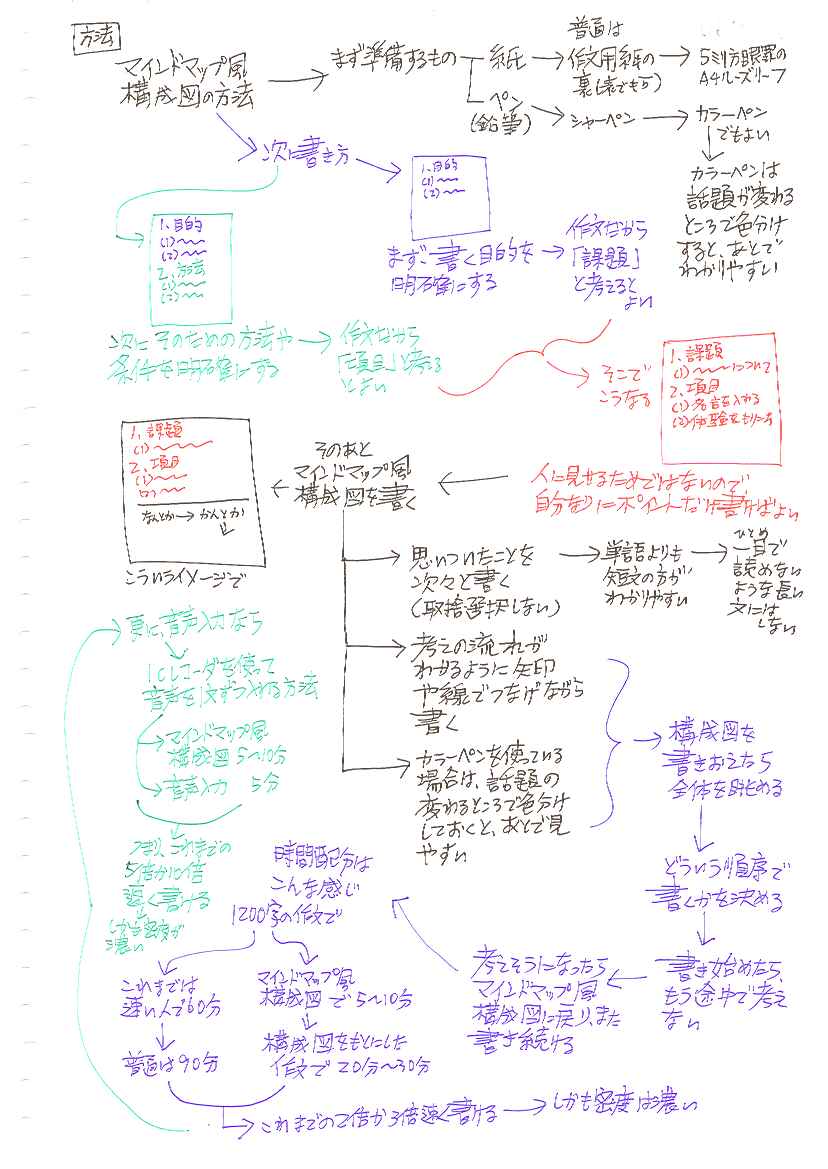 方法
マインドマップ風
構成図の方法
まず準備するもの
紙
普通は
作文用紙の
裏(表でも可)
5ミリ方眼罫の
A4ルーズリーフ
ペン
(鉛筆)
シャーペン
カラーペン
でもよい
カラーペンは
話題が変わる
ところで色分け
すると、あとで
わかりやすい
次に書き方
1.目的
(1)
(2)
まず書く目的を
明確にする
作文だから
「課題」
と考えると
よい
1.目的
(1)
(2)
2.方法
(1)
(2)
次にそのための方法や
条件を明確にする
作文だから
「項目」と考える
とよい
そこで
こうなる
1.課題
(1)について
2.項目
(1)名言を入れる
(2)体験をもりこむ
人に見せるためではないので、
自分なりにポイントだけ書けばよい
そのあと
マインドマップ風
構成図を書く
1.課題
(1)
2.項目
(1)
(2)
なんとか→かんとか
こういうイメージで
思いついたことを
次々と書く
(取捨選択しない)
単語よりも
短文の方が
わかりやすい
ひとめ
一目で
読めない
ような長い
文には
しない
考えの流れが
わかるように矢印
や線でつなげながら
書く
カラーペンを使っている
場合は、話題の
変わるところで色分け
しておくと、あとで見
やすい
構成図を
書きおえたら
全体を眺める
どういう順序で
書くかを決める
書き始めたら、
もう途中で考え
ない
考えそうになったら
マインドマップ風
構成図に戻り、また
書き続ける
時間配分は
こんな感じ
1200字の作文で
これまでは
速い人で60分
普通は90分
マインドマップ風
構成図で5〜10分
構成図をもとにした
作文で20分〜30分
これまでの2倍から3倍速く書ける
しかも密度は濃い
更に、音声入力なら
ICレコーダを使って
音声を1文ずつ入れる方法
マインドマップ風
構成図5〜10分
音声入力 5分
つまり、これまでの
5倍から6倍
速く書ける
しかも密度が
濃い